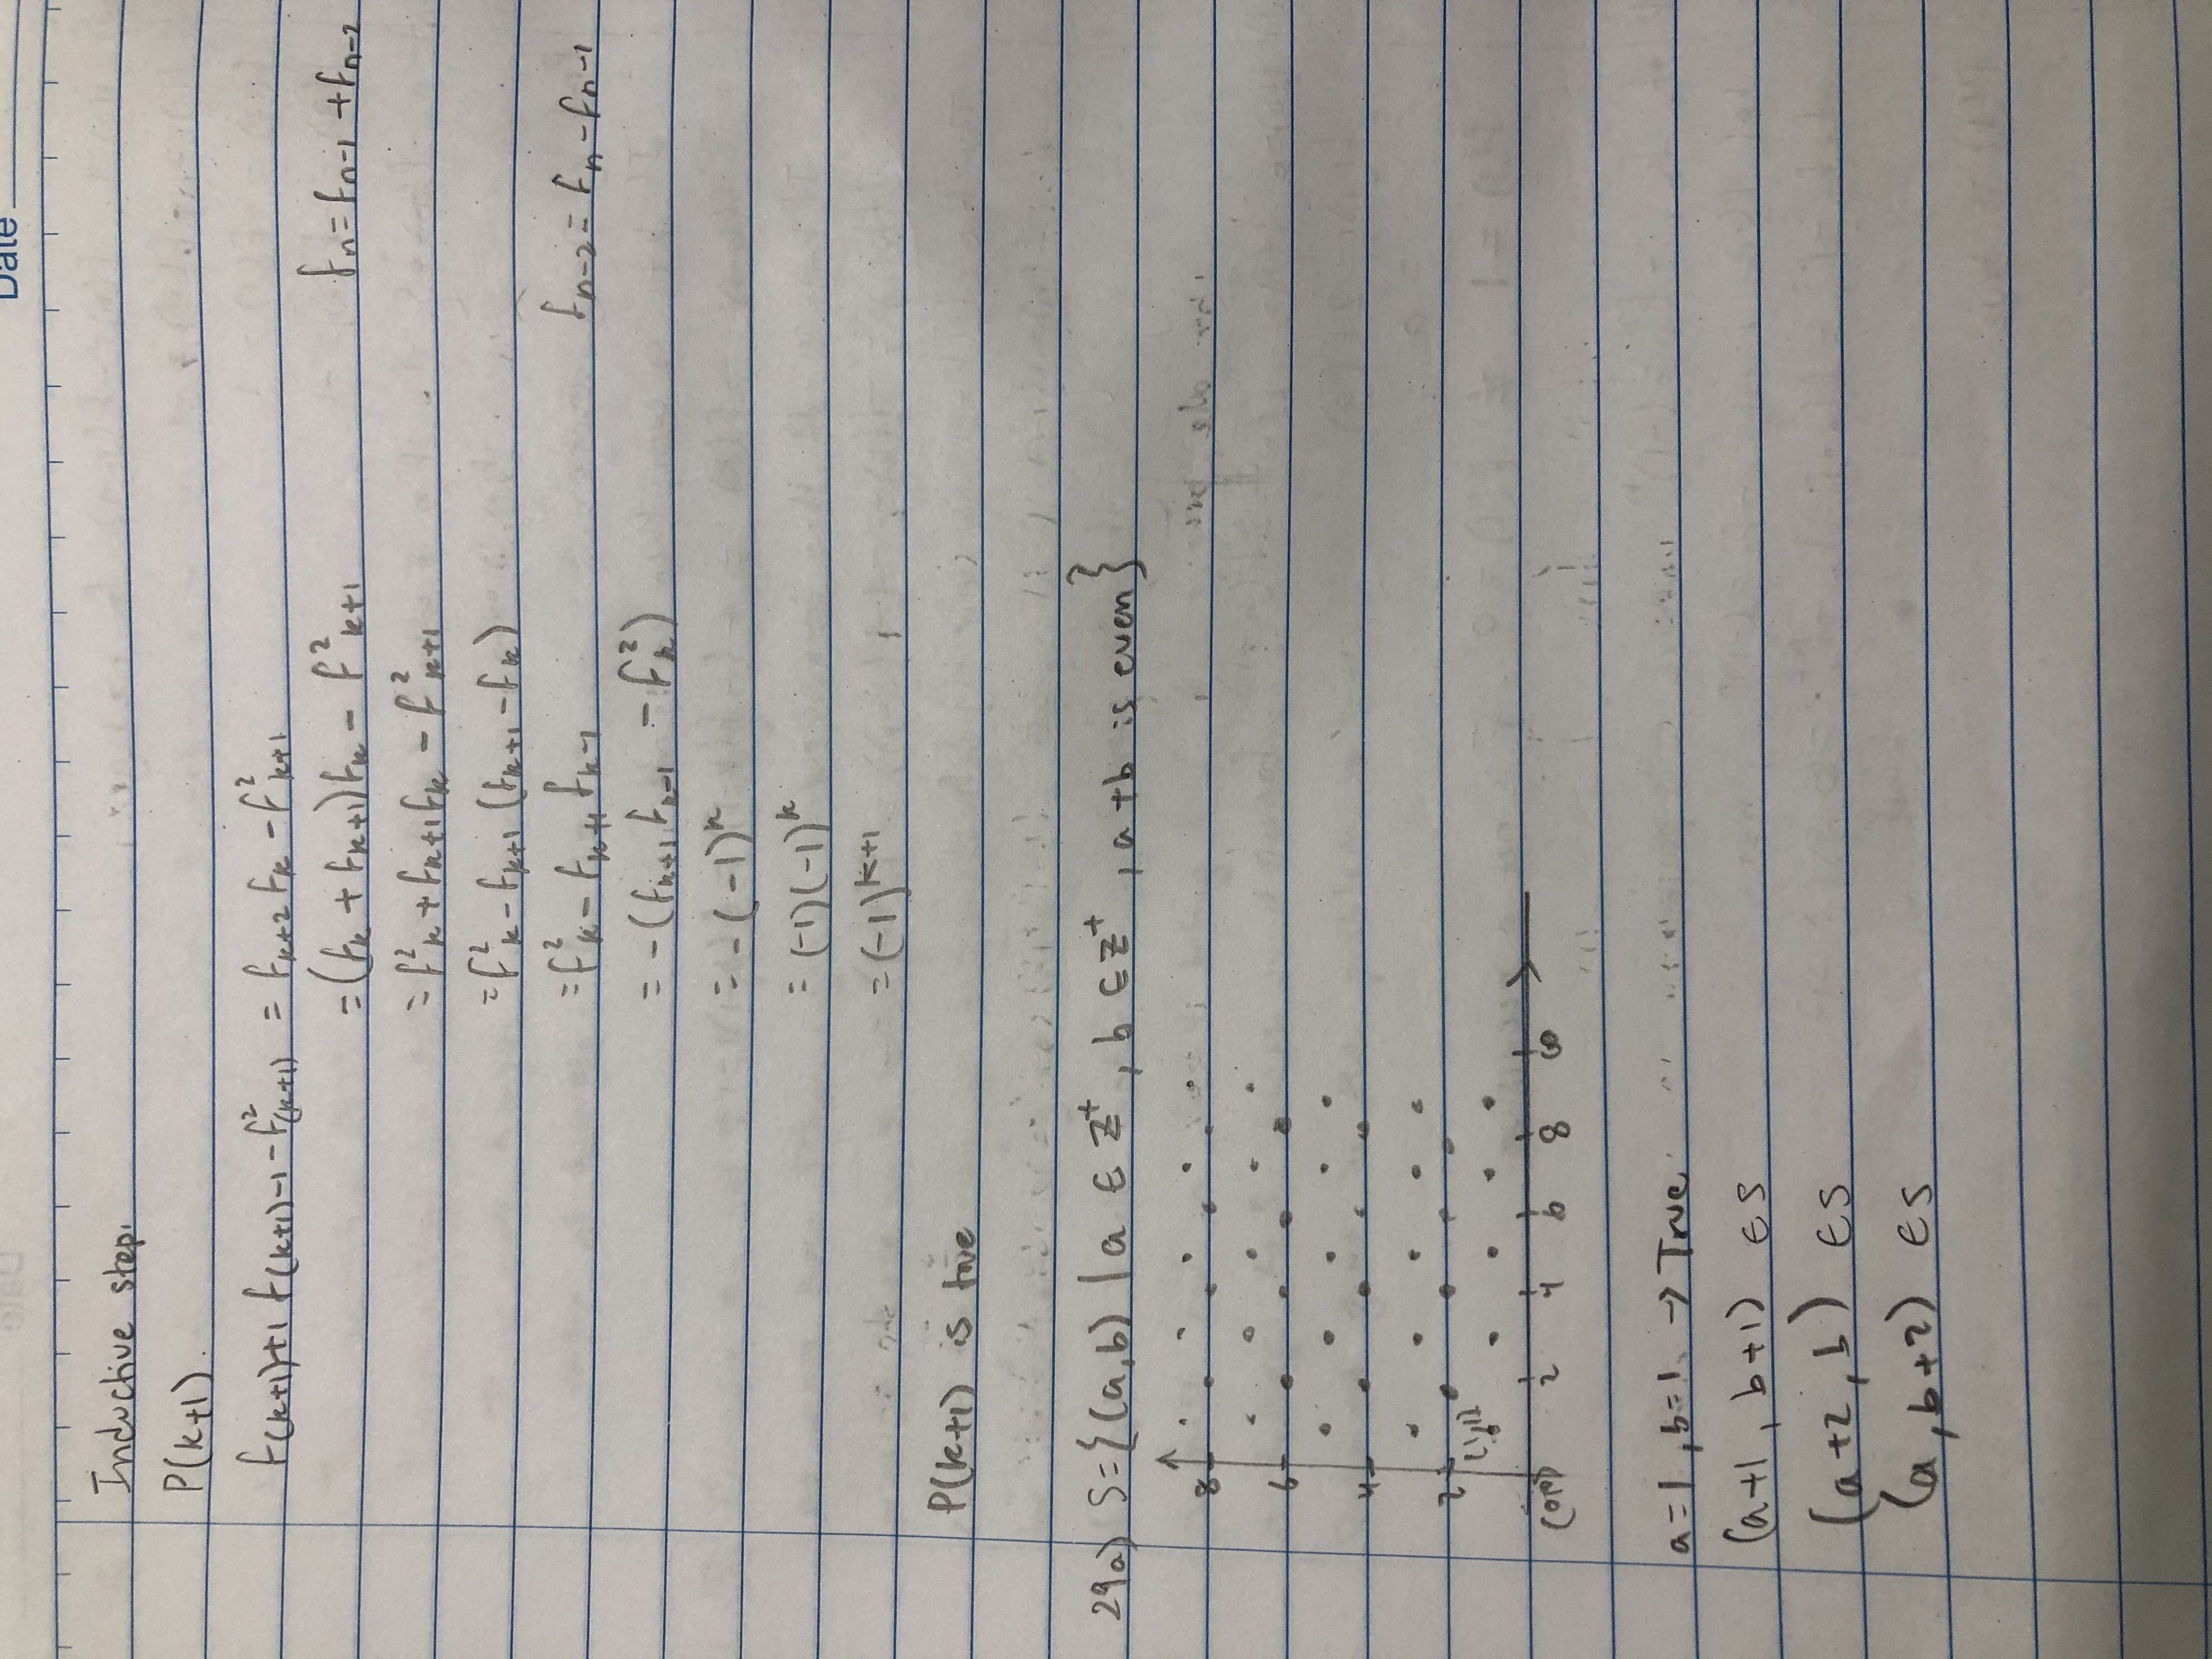 Date
Inductive step.
P(k+1).
f(k+1)+1 f(k+1)-1 - f²(k+1) = fk+2 fk - f²k+1
= (fk + fk+1)fk - f²k+1    fn = fn-1 + fn-2
= f²k + fk+1fk - f²k+1
= f²k - fk+1 (fk+1 - fk)
= f²k - fk+1 fk-1    fn-2 = fn - fn-1
= -(fk+1 fk-1 - f²k)
= -(-1)^k
= (-1)(-1)^k
= (-1)^k+1
P(k+1) is true
29a) S={(a,b) | a ∈ Z⁺, b ∈ Z⁺, a+b is even}
8
6
4
2
(1,1)
(0,0) 2 4 6 8
a=1, b=1. → True
(a+1, b+1) ∈ S
(a+2, b) ∈ S
(a, b+2) ∈ S